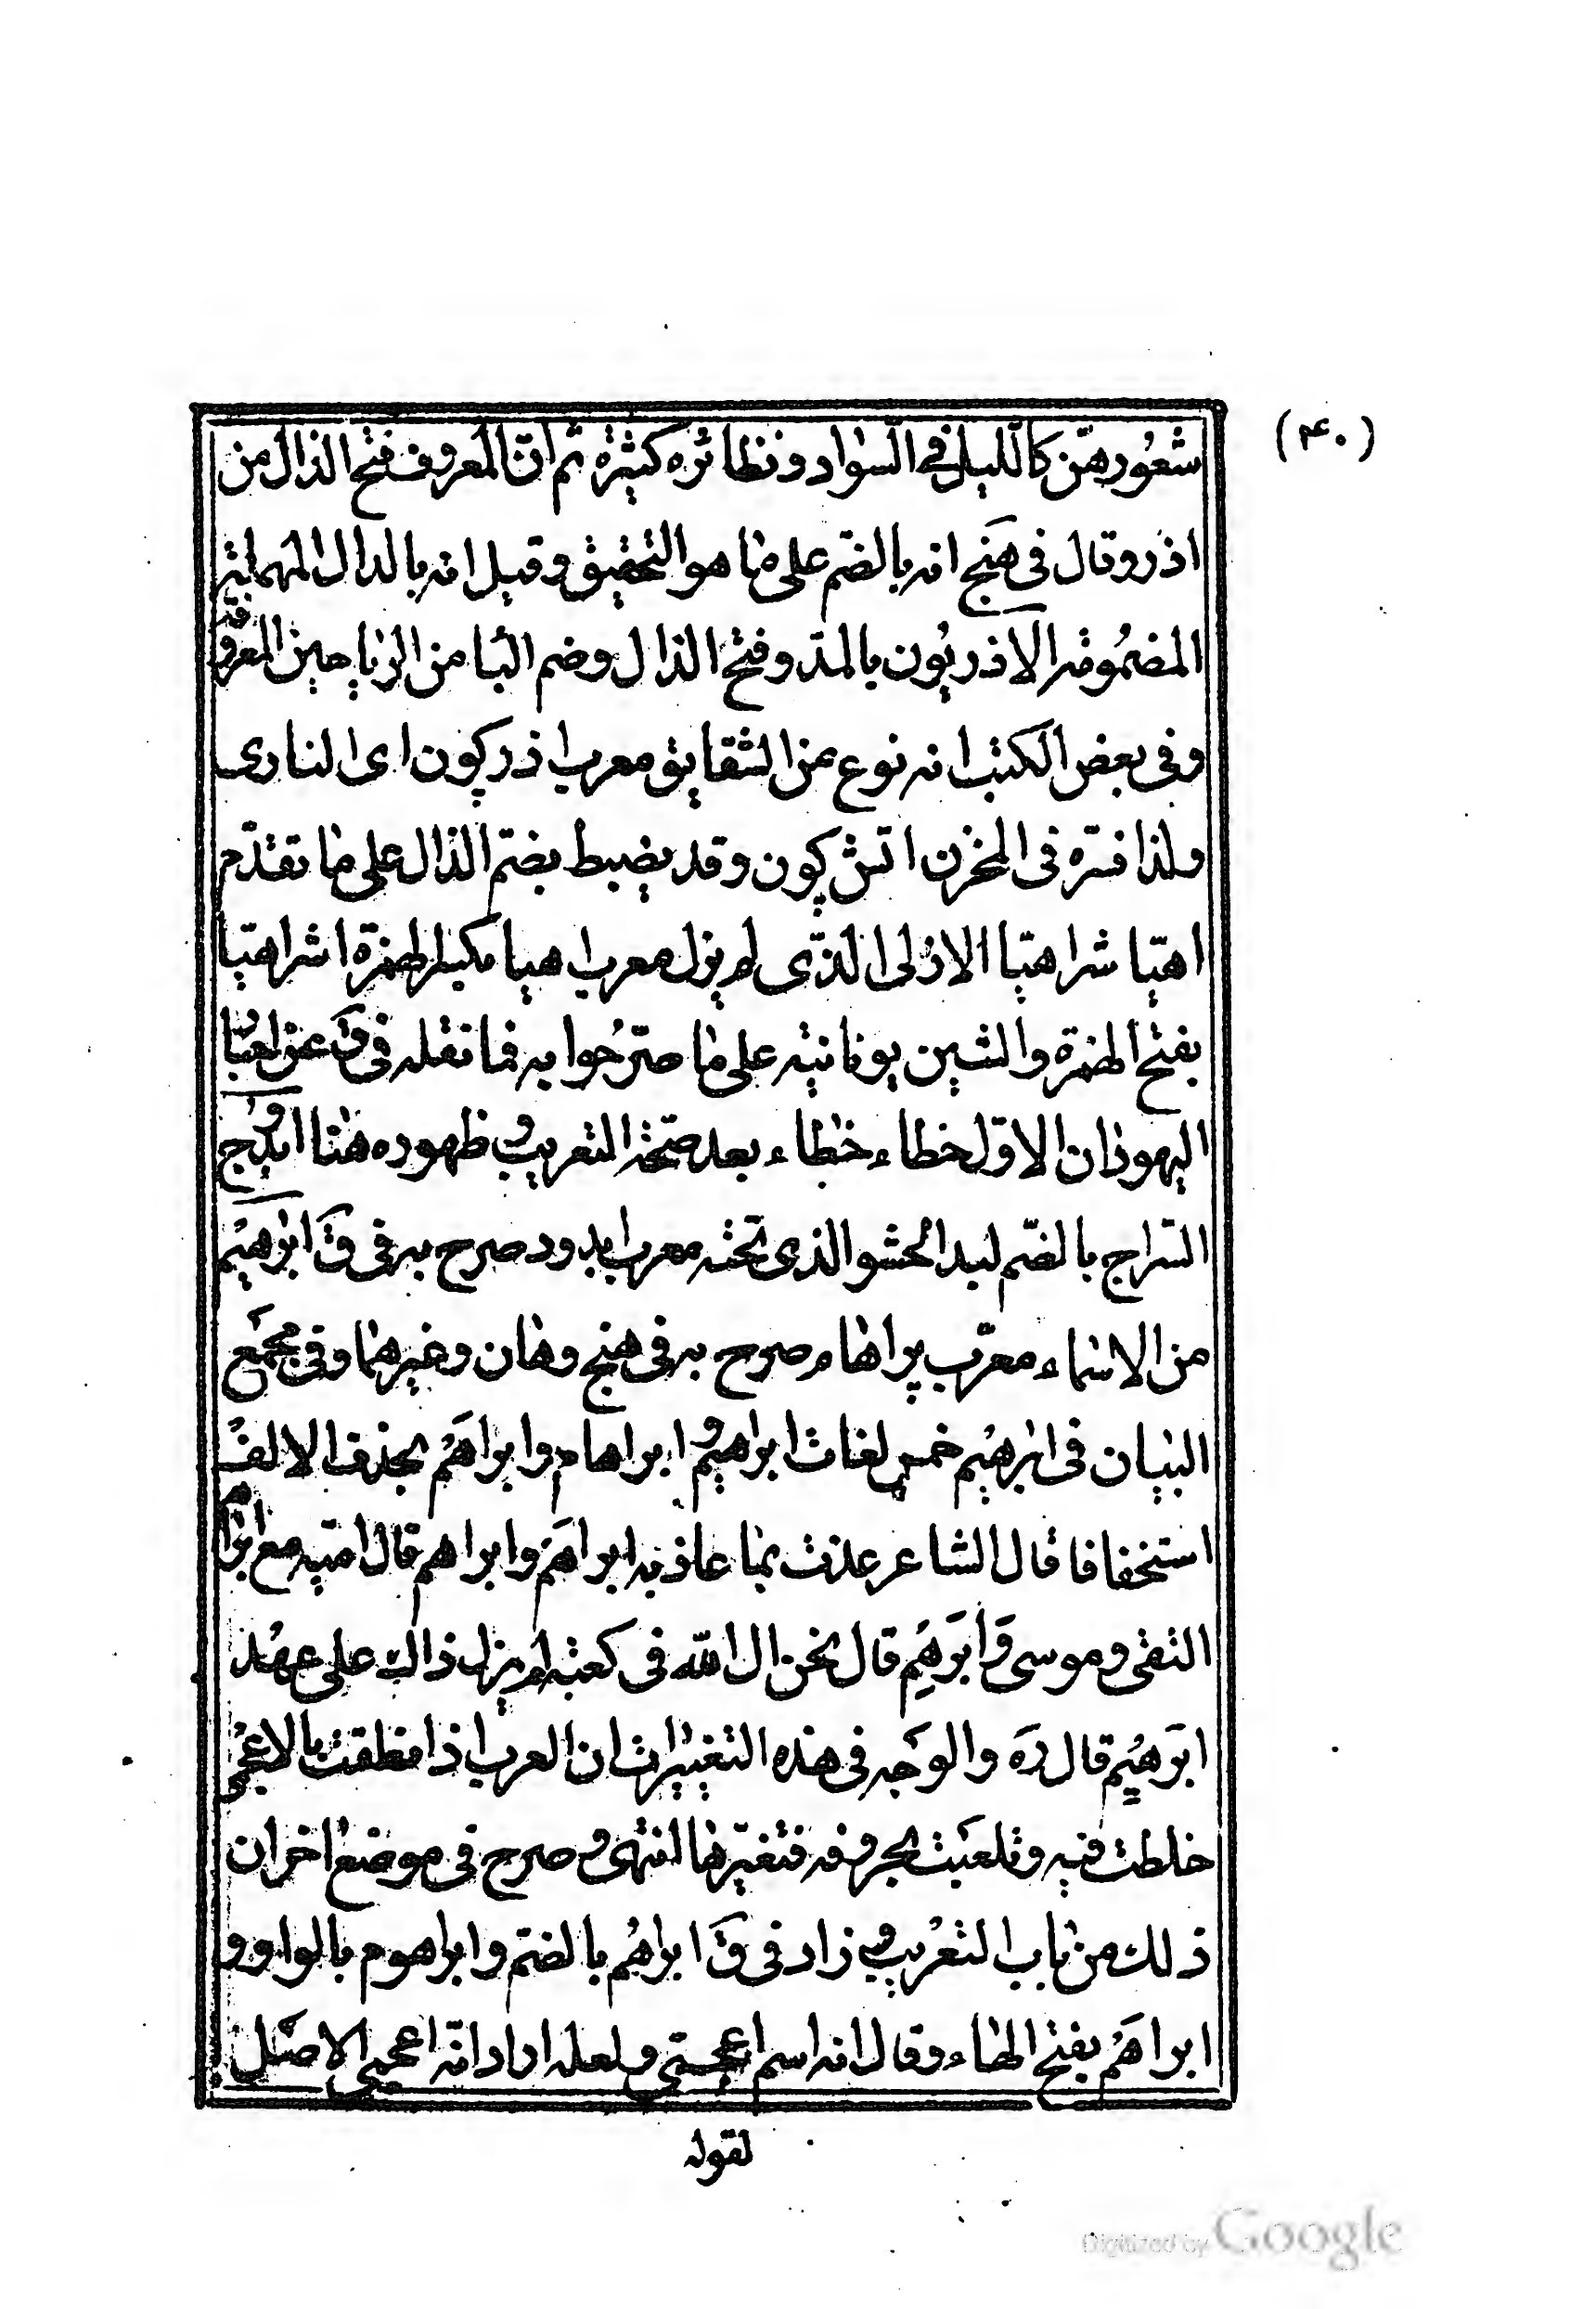 (۴۰)
شعورهن كاللیل فی السواد ونظائره كثیرة ثم ان المعروف فتح الذال من
اذر وقال فی هنج انه بالضم علی ما هو التحقیق وقیل انه بالدال المهملة
المضمومة الآذریون بالمد وفتح الذال وضم الیا من الریاحین المعروفة
وفی بعض الكتب انه نوع من الشقایق معرب اذرگون ای الناری
ولذا فسره فی المخزن اتش گون وقد یضبط بضم الذال علی ما تقدم
اهیا شراهیا الازلی الذی لم یزل معرب اهیا بكسر الهمزة اشراهیا
بفتح الهمزة والشین یونانیة علی ما صرحوا به فما نقله فی ق عن احبار
الیهود ان الاول خطاء خطاء بعد صحة التعریب و ظهوره هنا ابدوج
السراج بالضم لبد الحشو الذی تحته معرب ابدود صرح به فی ق ابرهیم
من الاسماء معرب پراهام صرح به فی هنج وهان وغیرهما وفی مجمع
البیان فی ابرهیم خمس لغات ابراهیم و ابراهام وابراهم بحذف الالف
استخفافا قال الشاعر عذت بما عاذ به ابراهم وابراهم قال امیه مع ابراهم
التقی وموسی و ابرهم قال نحن ال الله فی كعبته لم یزل ذاك علی عهد
ابرهیم قال ره والوجه فی هذه التغییرات ان العرب اذا نطقت بالاعجمی
خلطت فیه وتلعبت بحروفه فتغیرها انتهی و صرح فی موضع اخر ان
ذلك من باب التعریب و زاد فی ق ابراهم بالضم وابراهوم بالواو و
ابراهم بفتح الهاء وقال انه اسم اعجمی ولعله اراد انه اعجمی الاصل
لقوله
Digitized by Google